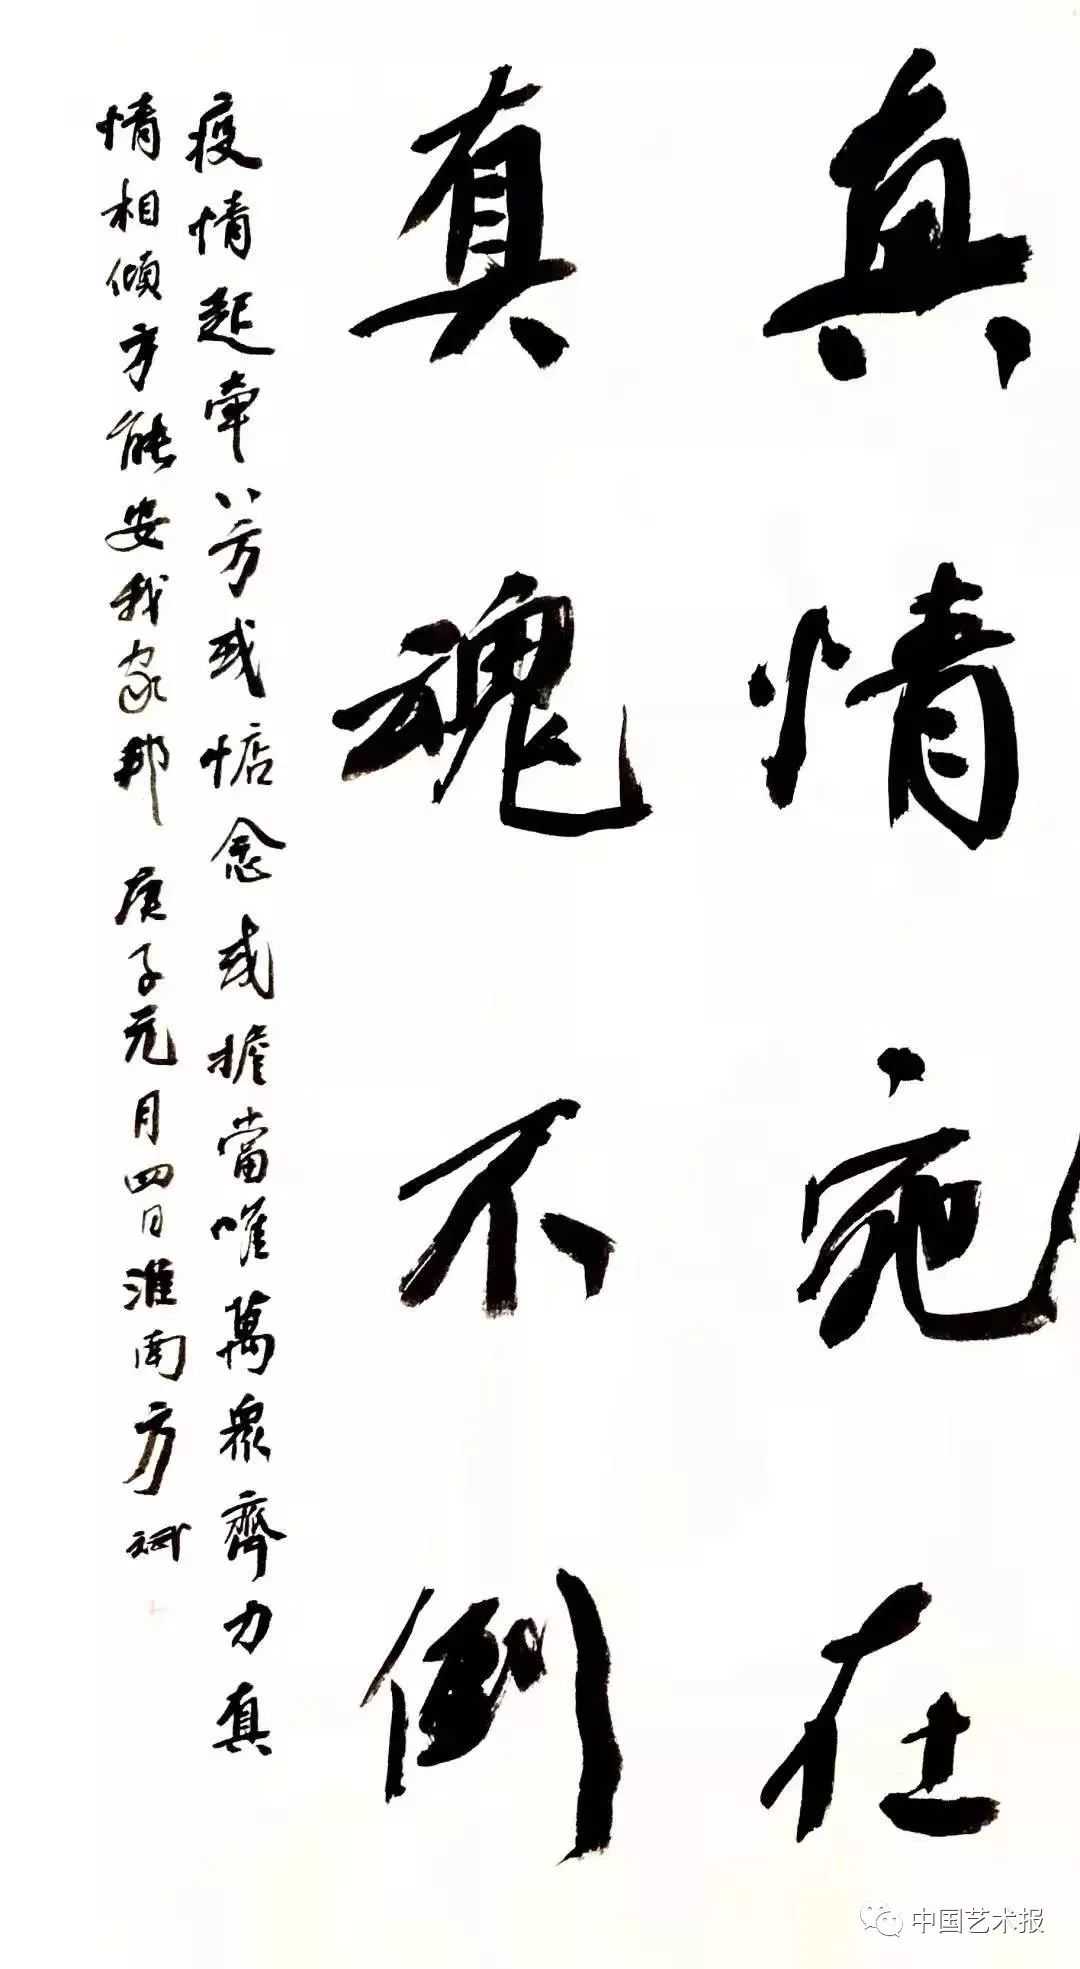 真情宛在
真魂不倒
疫情起牽八方或惦念或擔當唯萬眾齊力真
情相傾方能安我家邦 庚子元月四日淮南方斌
中国艺术报